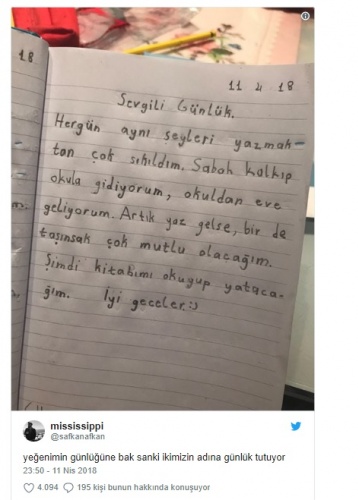 18
11 4 18
Sevgili Günlük.
Hergün aynı şeyleri yazmak-
tan çok sıkıldım. Sabah kalkıp
okula gidiyorum, okuldan eve
geliyorum. Artık yaz gelse, bir de
taşınsak çok mutlu olacağım.
Şimdi kitabımı okuyup yataca-
ğım. İyi geceler :)
mississippi
@safkanafkan
yeğenimin günlüğüne bak sanki ikimizin adına günlük tutuyor
23:50 - 11 Nis 2018
4.094 195 kişi bunun hakkında konuşuyor